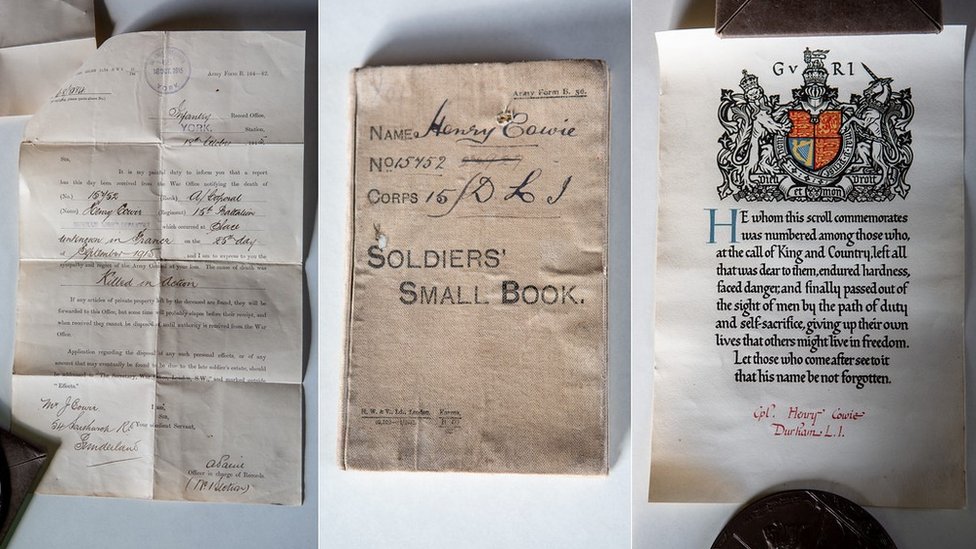 Army Form B. 104—82.
YORK
Infantry Record Office,
YORK. Station,
Sir,
It is my painful duty to inform you that a report
has this day been received from the War Office notifying the death of
(No.) 15752 (Rank) A/Corporal
(Name) Henry Cowie (Regiment) 15th Battalion
which occurred at Place
unknown in France on the 25th day
of September 1915 and I am to express to you the
sympathy and regret of the Army Council at your loss. The cause of death was
Killed in Action
If any articles of private property left by the deceased are found, they will be
forwarded to this Office, but some time will probably elapse before their receipt, and
when received they cannot be disposed of until authority is received from the War
Office.
Application regarding the disposal of any such personal effects, or of any
amount that may eventually be found to be due to the late soldier's estate, should
be addressed to "The Secretary, War Office, London, S.W.," and marked outside
"Effects."
I am,
Sir,
Your obedient Servant,
Mr J Cowie
Sunderland
Officer in charge of Records.
Army Form B. 50.
NAME Henry Cowie
No 15752
CORPS 15/D L I
SOLDIERS'
SMALL BOOK.
H. W. & V., Ld., London.
G V R I
DIEU ET MON DROIT
HE whom this scroll commemorates
was numbered among those who,
at the call of King and Country, left all
that was dear to them, endured hardness,
faced danger, and finally passed out of
the sight of men by the path of duty
and self-sacrifice, giving up their own
lives that others might live in freedom.
Let those who come after see to it
that his name be not forgotten.
Cpl. Henry Cowie
Durham L.I.